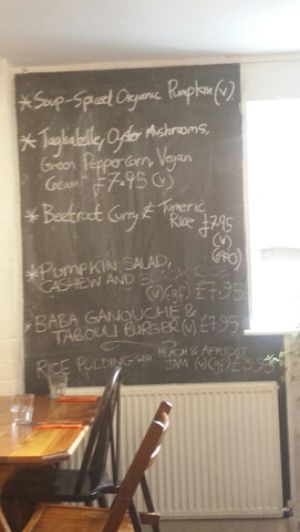 * Soup - Spiced Organic Pumpkin (v).
* Tagliatelle, Oyster Mushrooms,
Green Peppercorn, Vegan
Cream £7.95 (v)
* Beetroot Curry & Tumeric
Rice £7.95
(v)
(GFO)
* PUMPKIN SALAD,
CASHEW AND BLACK RICE
(v)(gf) £7.95
* BABA GANOUCHE &
TABOULI BURGER (v) £7.95
RICE PUDDING WITH PEACH & APRICOT
JAM (v)(gf)